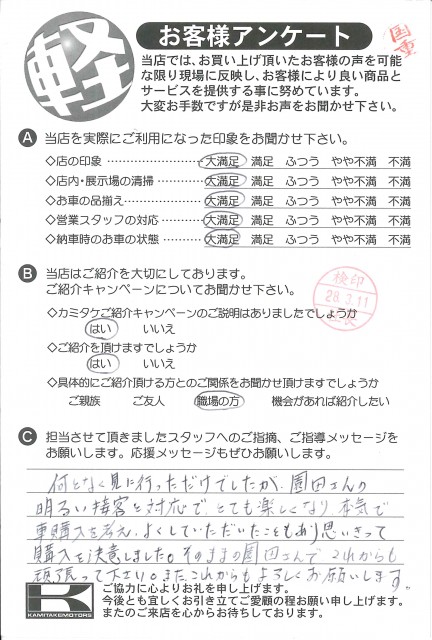 軽
お客様アンケート
国車
当店では、お買い上げ頂いたお客様の声を可能
な限り現場に反映し、お客様により良い商品と
サービスを提供する事に努めています。
大変お手数ですが是非お声をお聞かせ下さい。
A 当店を実際にご利用になった印象をお聞かせ下さい。
◇店の印象 大満足 満足 ふつう やや不満 不満
◇店内・展示場の清掃 大満足 満足 ふつう やや不満 不満
◇お車の品揃え 大満足 満足 ふつう やや不満 不満
◇営業スタッフの対応 大満足 満足 ふつう やや不満 不満
◇納車時のお車の状態 大満足 満足 ふつう やや不満 不満
B 当店はご紹介を大切にしております。
ご紹介キャンペーンについてお聞かせ下さい。
検印
28.3.11
◇カミタケご紹介キャンペーンのご説明はありましたでしょうか
はい いいえ
◇ご紹介を頂けますでしょうか
はい いいえ
◇具体的にご紹介頂ける方とのご関係をお聞かせ頂けますでしょうか
ご親族 ご友人 職場の方 機会があれば紹介したい
C 担当させて頂きましたスタッフへのご指摘、ご指導メッセージを
お願いします。応援メッセージもぜひお願いします。
何となく見に行っただけでしたが、園田さんの
明るい接客と対応で、とても楽しくなり、本気で
車購入を考え、よくしていただいたこともあり思いきって
購入を決意しました。そのままの園田さんでこれからも
頑張って下さい。また、これからもよろしくお願いします。
K
KAMITAKEMOTORS
ご協力に心よりお礼を申し上げます。
今後とも宜しくお引き立てご愛顧の程お願い申し上げます。
またのご来店を心からお待ちしております。